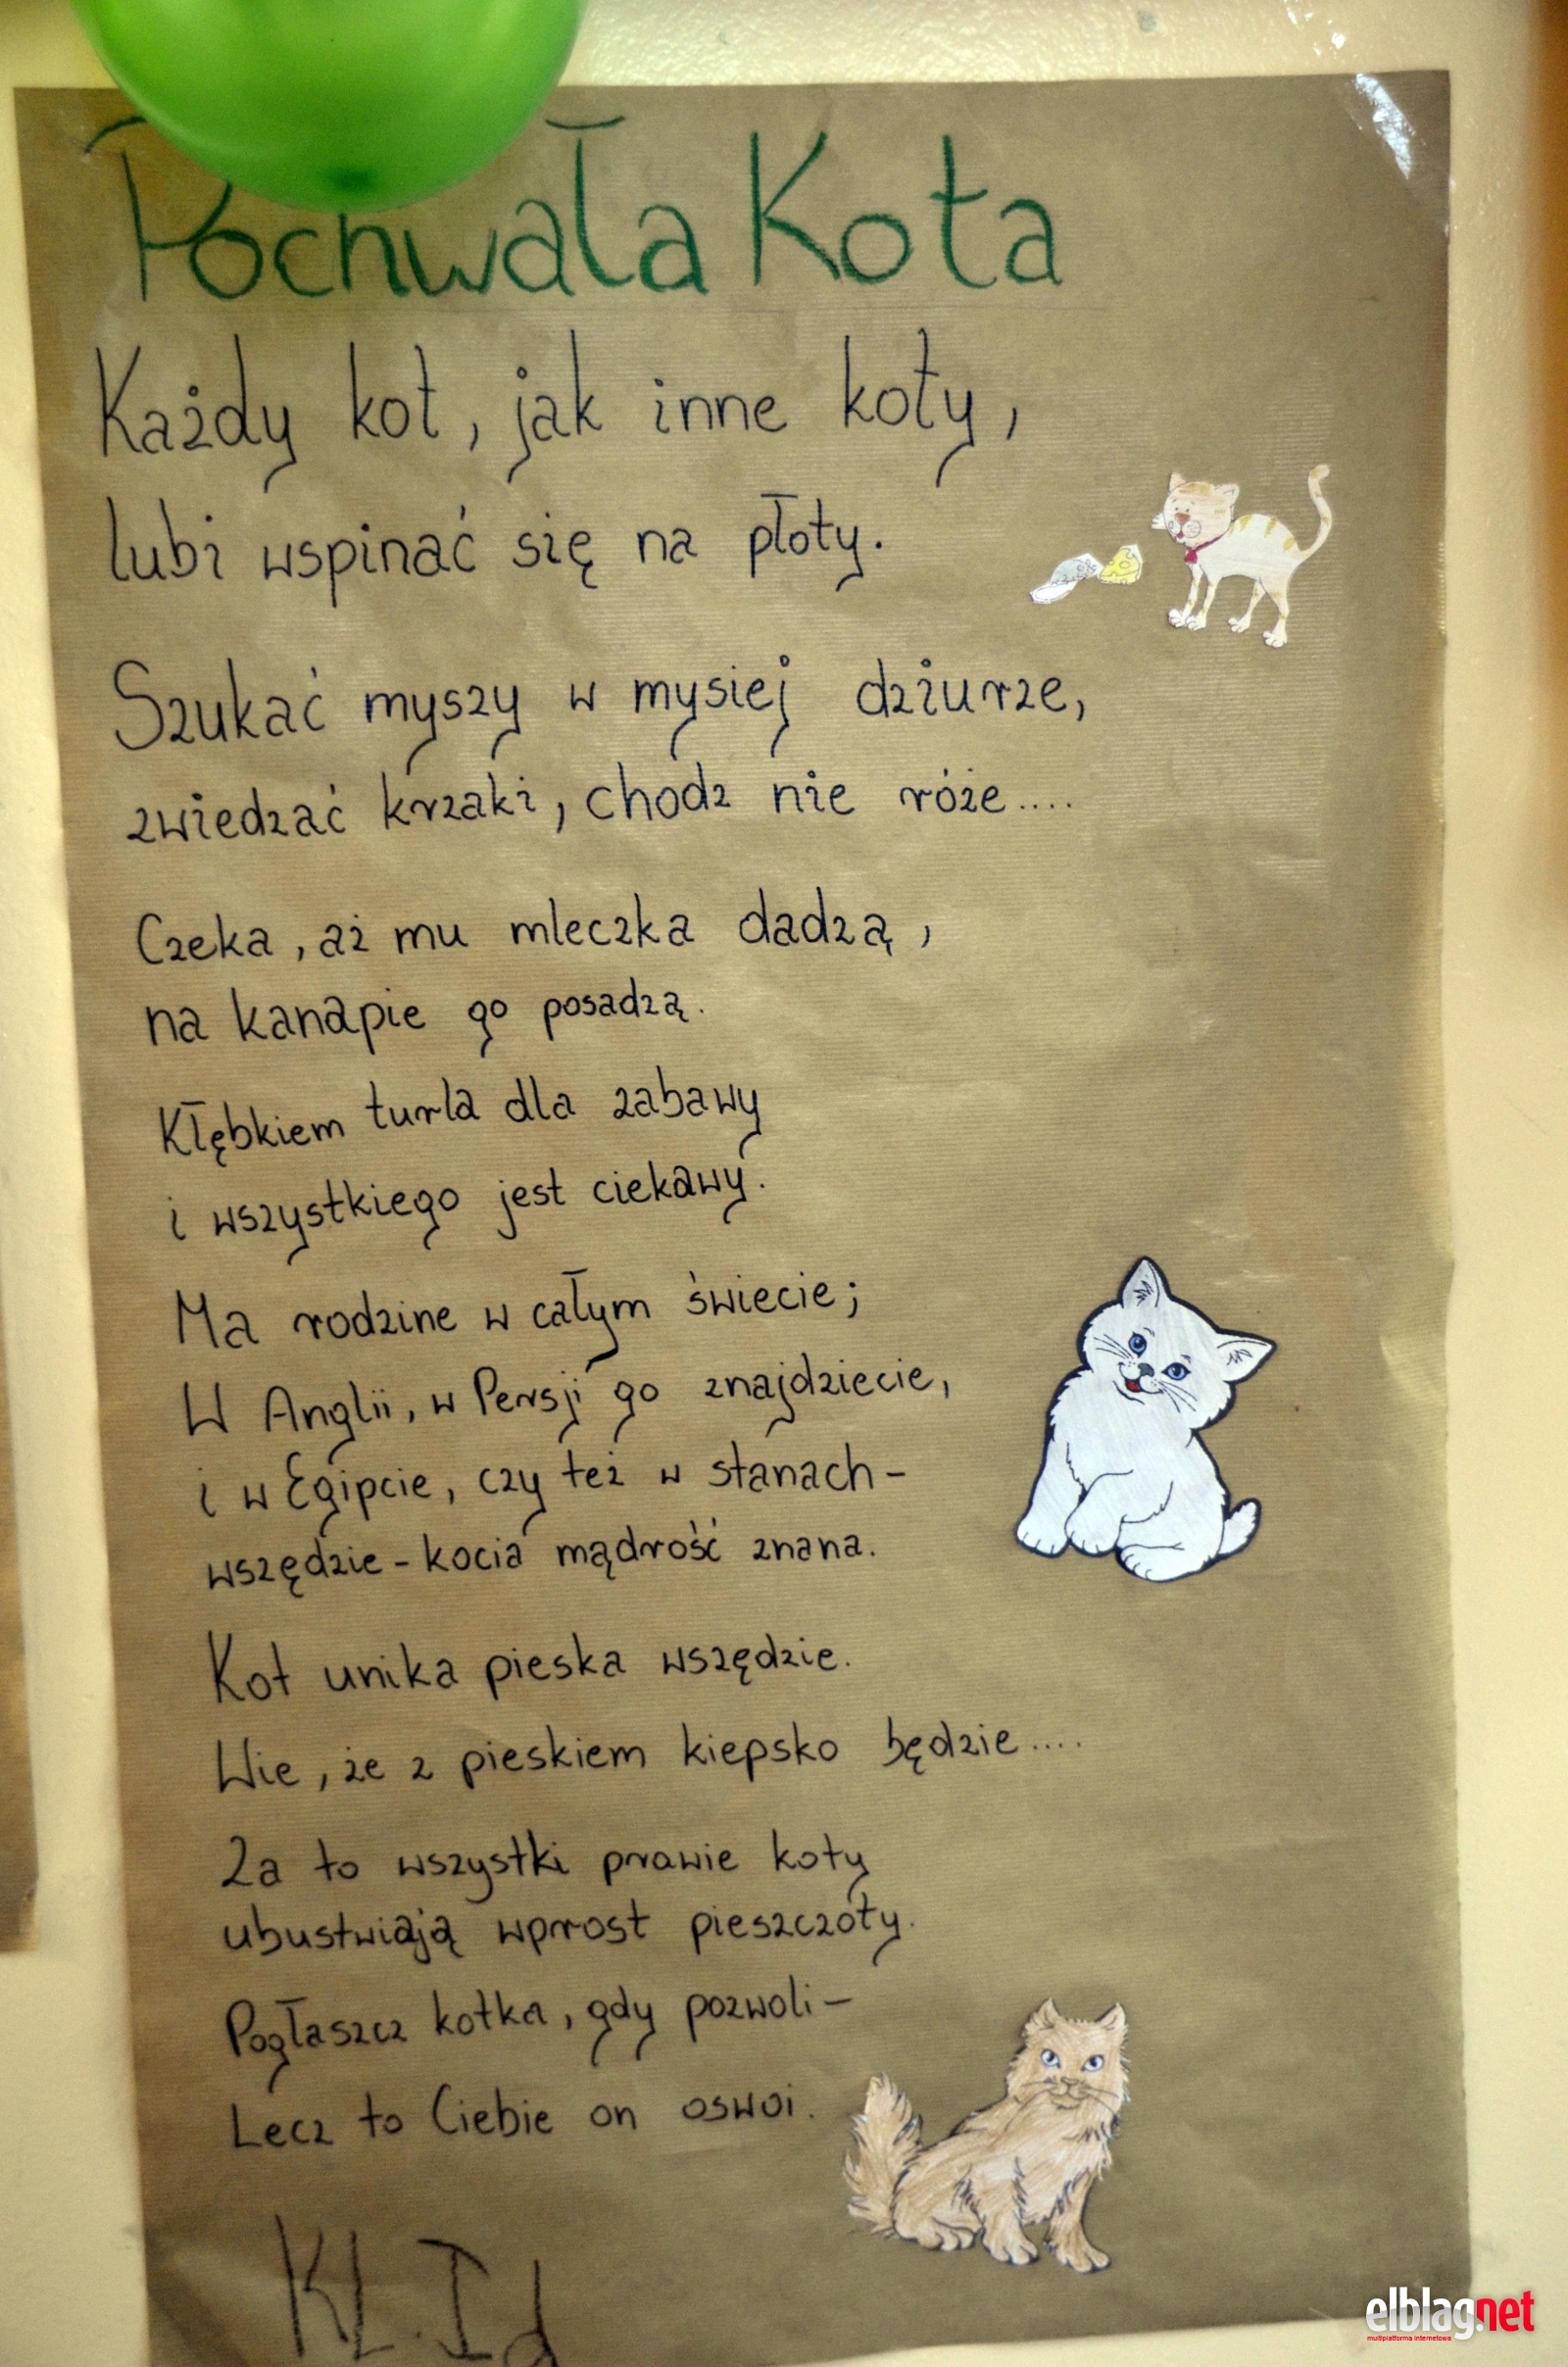 Pochwała Kota
Każdy kot, jak inne koty,
lubi wspinać się na płoty.
Szukać myszy w mysiej dziurze,
zwiedzać krzaki, chodz nie róże....
Czeka, aż mu mleczka dadzą,
na kanapie go posadzą.
Kłębkiem turla dla zabawy
i wszystkiego jest ciekawy.
Ma rodzine w całym świecie;
W Anglii, w Persji go znajdziecie,
i w Egipcie, czy też w stanach-
wszędzie-kocia mądrość znana.
Kot unika pieska wszędzie.
Wie, że z pieskiem kiepsko będzie....
Za to wszystki prawie koty
ubustwiają wprost pieszczoty.
Pogłaszcz kotka, gdy pozwoli-
Lecz to Ciebie on oswoi.
KL. I d
elblag.net
multiplatforma internetowa